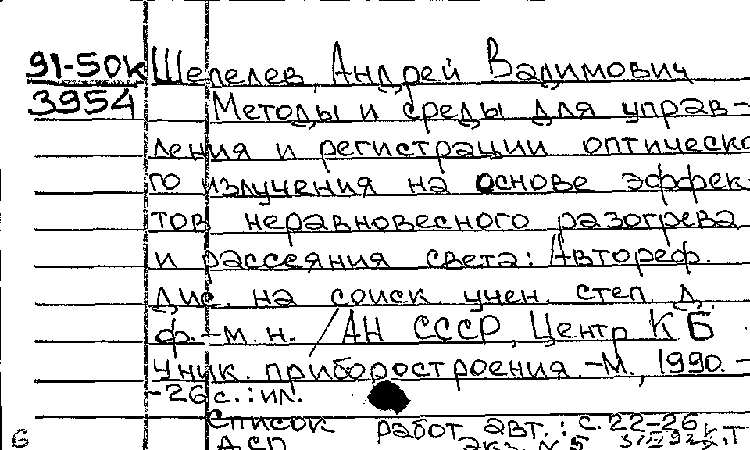 91-50к Шепелев, Андрей Вадимович
3954 Методы и среды для управ-
ления и регистрации оптическо
го излучения на основе эффек-
тов неравновесного разогрева
и рассеяния света: Автореф.
дис. на соиск учен. степ д.
ф.-м. н. / АН СССР, Центр КБ
уник. приборостроения -М., 1990. -
-26 с. : ил.
Список работ авт.: с. 22-26
ДСП экз. № 5
6